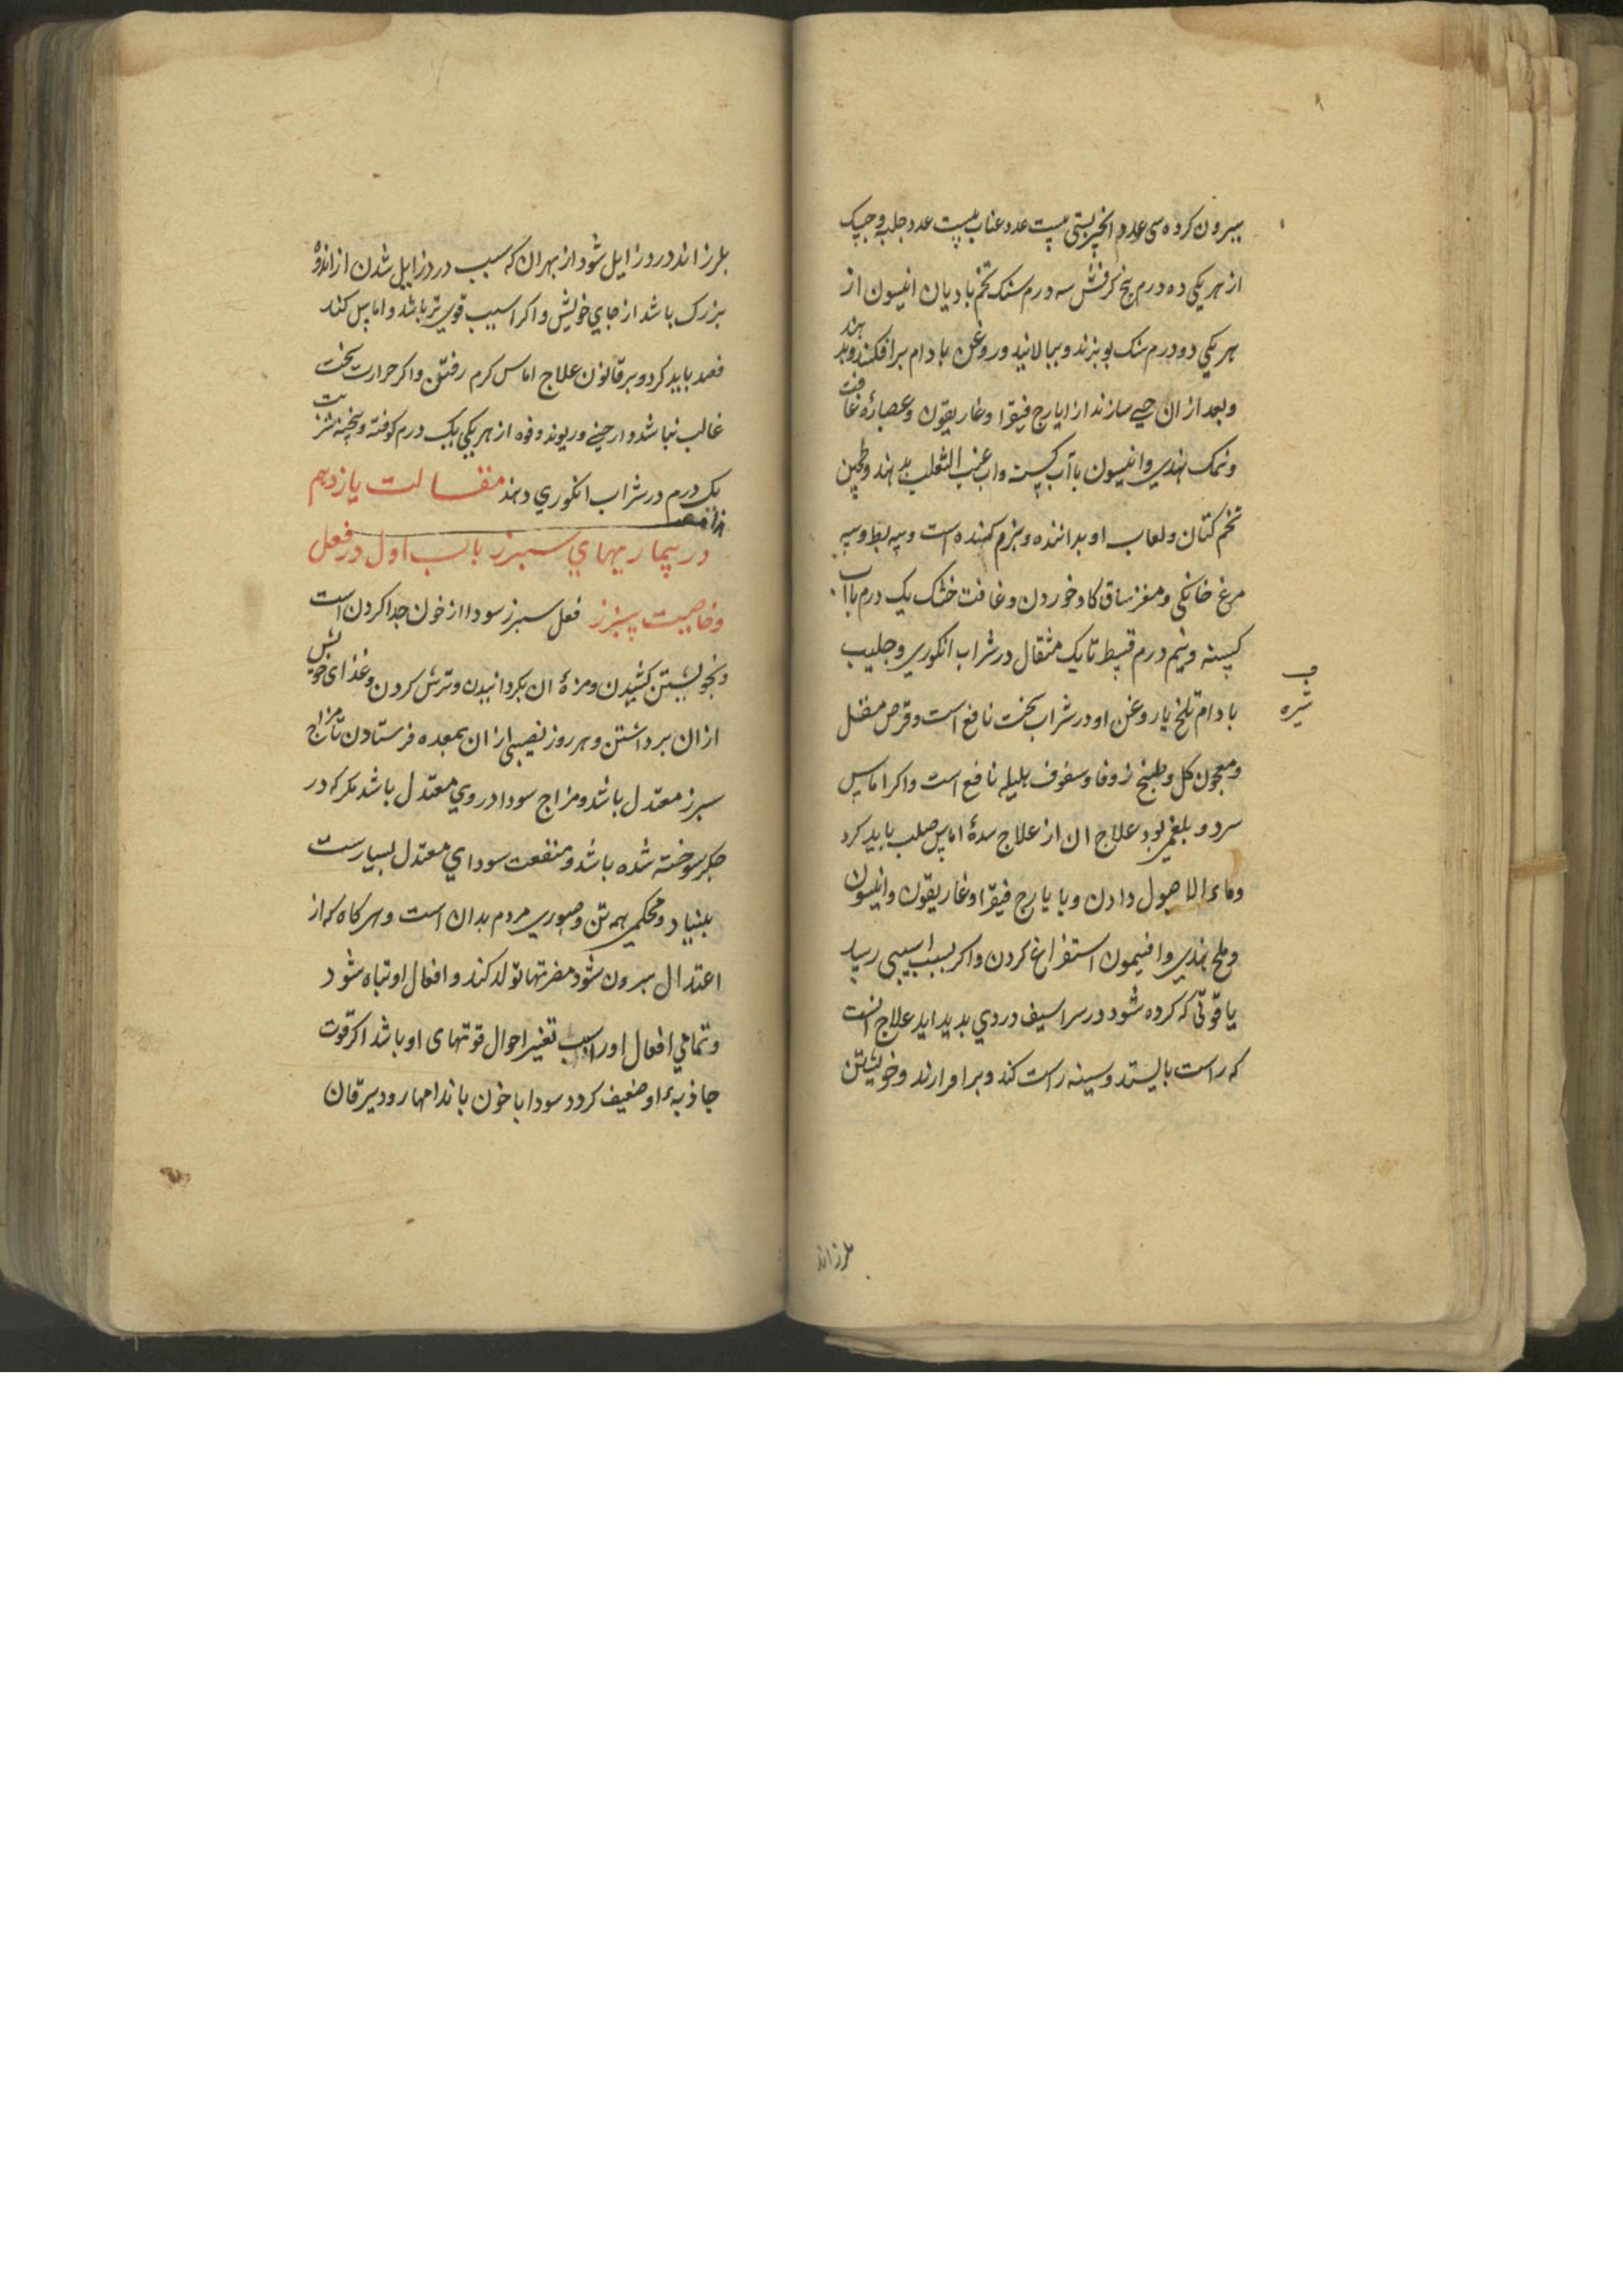 بیرون کرده سی عدد انجیر بستی بیست عدد عناب بیست عدد حلبه و
از هر یکی ده درم بیخ کرفش سه درم سنک تخم بادیان انیسون از
هر یکی دو درم سنک بوبزند و بیالانید و روغن بادام برافکنند و بدهند
و بعد از ان حبی سازند از ایارج فیقرا و غاریقون و عصارهٔ غافت
و نمک هندی و انیسون با آب و اب عنب الثعلب بدهند و طحین
تخم کتان و لعاب او بداننده و بزم کننده است و پیه بط و پیه
مرغ خانکی و مغز ساق کاو خوردن و غافت خشک یک درم با آب
و نیم درم قسط تا یک مثقال در شراب انکوری و حلیب
شیره
بادام تلخ یا روغن او در شراب پخت نافع است و قرص مقل
و معجون کل و طبیخ زوفا و سفوف هلیله نافع است و اکر اماس
سرد و بلغمی بود علاج ان از علاج سدهٔ اماس صلب باید کرد
و ماء الاصول دادن و با یارج فیقرا و غاریقون و انیسون
و ملح هندی و افتیمون استفراغ کردن و اکر بسبب اسیبی رسید
یا قوتی که کرده شود در سراسیف دردی بدید اید علاج انست
که راست بایستد و سینه راست کند و برافرازند و خویشتن
بلرزاند
بلرزاند درد زایل شود از بهر ان که سبب درد زایل شدن از اندوه
بزرک باشد از جای خویش و اکر اسیب قوی تر باشد و اماس کند
فصد باید کرد و بر قانون علاج اماس کرم رفتن و اکر حرارت سخت
غالب نباشد و ریوند و فوه از هر یکی یک درم کوفته و پخته
یک درم در شراب انکوری دهند مقالت یازدهم
در بیماریهای سبرز باب اول در فعل
و خاصیت سبرز فعل سبرز سودا از خون جدا کردن است
و بخویشتن کشیدن و مزهٔ ان بکردانیدن و ترش کردن و غذای خویش
از ان برداشتن و هر روز نصیبی از ان بمعده فرستادن تا مزاج
سبرز معتدل باشد و مزاج سودا در وی معتدل باشد مکر که در
جکر سوخته شده باشد و منفعت سودای معتدل بسیارست
بنیاد و محکمی همه تن و صبوری مردم بدان است و هر کاه که از
اعتدال بیرون شود مضرتها تولد کند و افعال او تباه شود
و تمامی افعال او را سبب تغیر احوال قوتهای او باشد اکر قوت
جاذبهء او ضعیف کردد سودا با خون باندامها رود یرقان